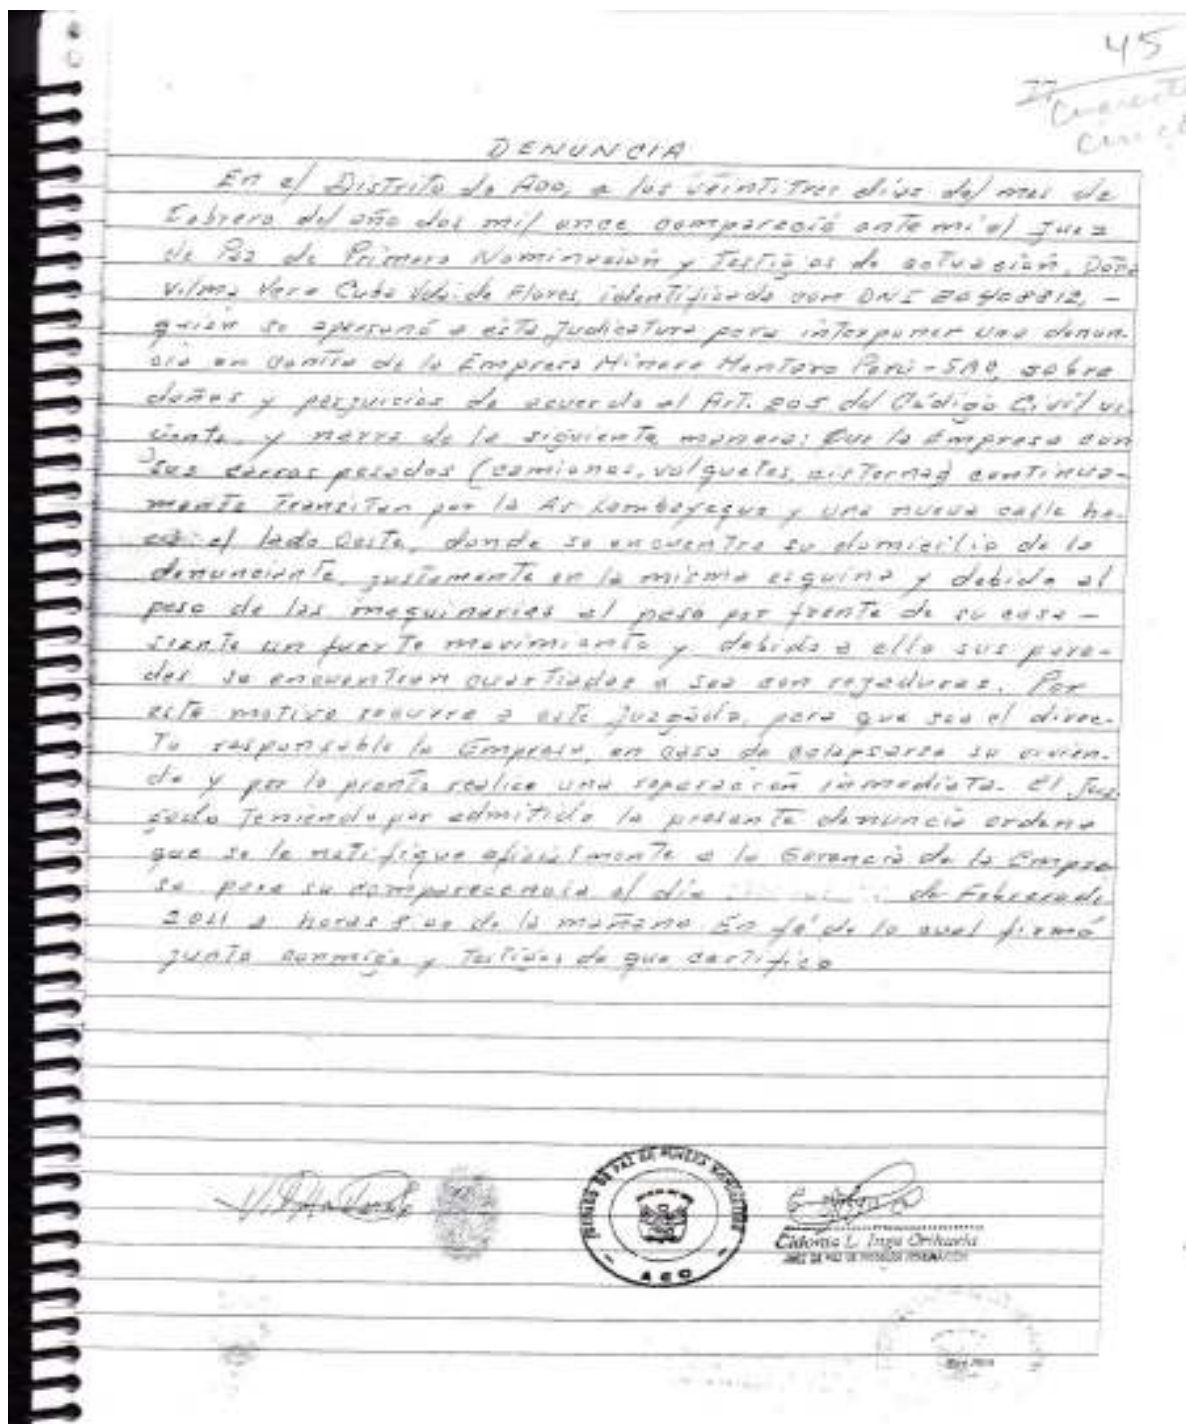 45
77
Cuarenta
Cinco
DENUNCIA
En el Distrito de Aco, a los veintitres dias del mes de
Febrero del año dos mil once compareció ante mi el Juez
de Paz de Primera Nominación y Testigos de actuación, Doña
Vilma Vera Cuba Vda. de Flores, identificada con DNI 20408812, -
quién se apersonó a esta Judicatura para interponer una denun-
cia en contra de la Empresa Minera Mantaro Perú - SAC, sobre
daños y perjuicios de acuerdo al Art. 205 del Código Civil vi-
gente, y narra de la siguiente manera: Que la Empresa con
sus carros pesados (camiones, volquetes, cisternas) continua-
mente transitan por la Av Lambayeque y una nueva calle ha-
cia el lado Oeste, donde se encuentra su domicilio de la
denunciante, justamente en la misma esquina y debido al
peso de las maquinarias al paso por frente de su casa -
siente un fuerte movimiento y debido a ello sus pare-
des se encuentran cuartiadas o sea con rajaduras. Por
este motivo recurre a este Juzgado, para que sea el direc-
to responsable la Empresa, en caso de colapsarse su vivien-
da y por lo pronto realice una reparación inmediata. El Juz-
gado Teniendo por admitido la presente denuncia ordena
que se le notifique oficialmente a la Gerencia de la Empre
sa para su comparecencia el día de Febrero de
2011 a horas 8.00 de la mañana En fé de lo cual firmó
junto conmigo y Testigos de que certifico
JUZGADO DE PAZ DE PRIMERA NOMINACION
ACO
Inga Orihuela
JUEZ DE PAZ DE PRIMERA NOMINACIÓN